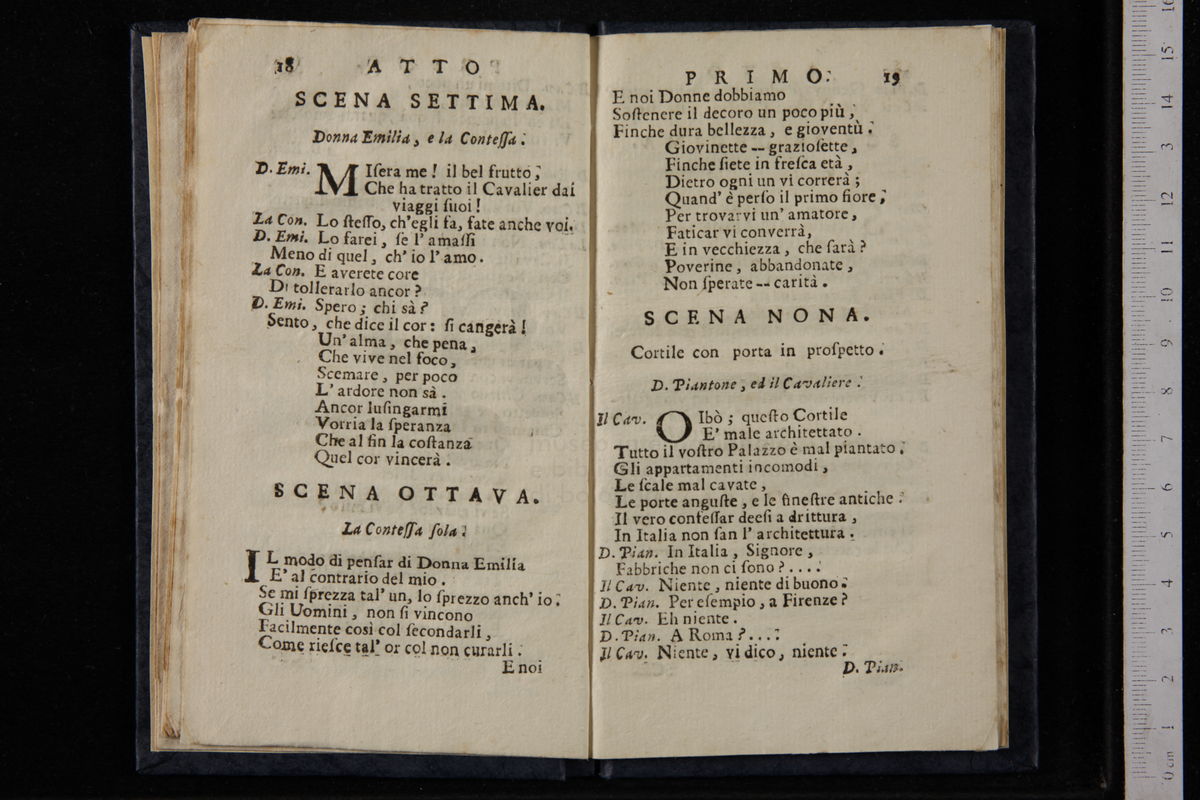 18 ATTO
SCENA SETTIMA.
Donna Emilia, e la Conteſſa.
D. Emi. MIſera me! il bel frutto,
Che ha tratto il Cavalier dai
viaggi ſuoi!
La Con. Lo ſteſſo, ch'egli fa, fate anche voi.
D. Emi. Lo farei, ſe l'amaſſi
Meno di quel, ch'io l'amo.
La Con. E averete core
Di tollerarlo ancor?
D. Emi. Spero; chi sà?
Sento, che dice il cor: ſi cangerà!
Un'alma, che pena,
Che vive nel foco,
Scemare, per poco
L'ardore non sà.
Ancor luſingarmi
Vorria la ſperanza
Che al fin la coſtanza
Quel cor vincerà.
SCENA OTTAVA.
La Conteſſa ſola.
IL modo di penſar di Donna Emilia
E' al contrario del mio.
Se mi ſprezza tal'un, lo ſprezzo anch'io.
Gli Uomini, non ſi vincono
Facilmente così col ſecondarli,
Come rieſce tal'or col non curarli.
E noi
PRIMO. 19
E noi Donne dobbiamo
Soſtenere il decoro un poco più,
Finche dura bellezza, e gioventù.
Giovinette -- grazioſette,
Finche ſiete in freſca età,
Dietro ogni un vi correrà;
Quand'è perſo il primo fiore,
Per trovarvi un'amatore,
Faticar vi converrà,
E in vecchiezza, che ſarà?
Poverine, abbandonate,
Non ſperate -- carità.
SCENA NONA.
Cortile con porta in proſpetto.
D. Piantone, ed il Cavaliere.
Il Cav. OIbò; queſto Cortile
E' male architettato.
Tutto il voſtro Palazzo è mal piantato.
Gli appartamenti incomodi,
Le ſcale mal cavate,
Le porte anguſte, e le fineſtre antiche.
Il vero confeſſar deeſi a drittura,
In Italia non ſan l'architettura.
D. Pian. In Italia, Signore,
Fabbriche non ci ſono?....
Il Cav. Niente, niente di buono.
D. Pian. Per eſempio, a Firenze?
Il Cav. Eh niente.
D. Pian. A Roma?....
Il Cav. Niente, vi dico, niente.
D. Pian.
0 cm 1 2 3 4 5 6 7 8 9 10 11 12 3 14 15 16